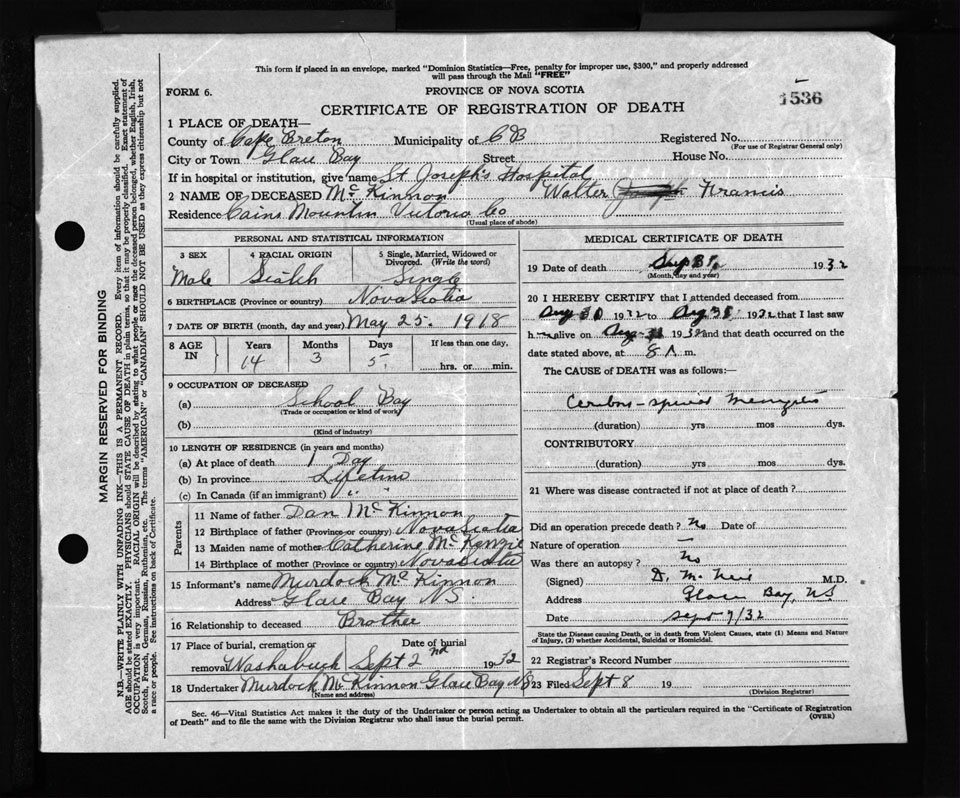 This form if placed in an envelope, marked "Dominion Statistics—Free, penalty for improper use, $300," and properly addressed
will pass through the Mail "FREE"
FORM 6.
PROVINCE OF NOVA SCOTIA
1536
CERTIFICATE OF REGISTRATION OF DEATH
1 PLACE OF DEATH—
County of Cape Breton Municipality of C B Registered No.
(For use of Registrar General only)
City or Town Glace Bay Street House No.
If in hospital or institution, give name St. Joseph's Hospital
2 NAME OF DECEASED McKinnon Walter Joseph Francis
Residence Cains Mountin Victoria Co
(Usual place of abode)
PERSONAL AND STATISTICAL INFORMATION
3 SEX 4 RACIAL ORIGIN 5 Single, Married, Widowed or
Divorced. (Write the word)
Male Single
6 BIRTHPLACE (Province or country) Nova Scotia
7 DATE OF BIRTH (month, day and year) May 25. 1918
8 AGE IN Years Months Days If less than one day,
14 3 5 hrs. or min.
9 OCCUPATION OF DECEASED
(a) School Boy
(Trade or occupation or kind of work)
(b)
(Kind of industry)
10 LENGTH OF RESIDENCE (in years and months)
(a) At place of death 1 Day
(b) In province Lifetime
(c) In Canada (if an immigrant) " "
Parents
11 Name of father Dan McKinnon
12 Birthplace of father (Province or country) Nova Scotia
13 Maiden name of mother Catherine McKenzie
14 Birthplace of mother (Province or country) Nova Scotia
15 Informant's name Murdock McKinnon
Address Glace Bay NS.
16 Relationship to deceased Brother
17 Place of burial, cremation or Date of burial
removal Washabuck Sept 2nd 1932
18 Undertaker Murdock McKinnon Glace Bay NS
(Name and address)
MEDICAL CERTIFICATE OF DEATH
19 Date of death 1932
(Month, day and year)
20 I HEREBY CERTIFY that I attended deceased from
Aug 30 1932 to Aug 31 1932 that I last saw
h alive on Aug 31 1932 and that death occurred on the
date stated above, at 8 A m.
The CAUSE of DEATH was as follows:—
Cerebro-spinal Meningitis
(duration) yrs mos dys.
CONTRIBUTORY
(duration) yrs mos dys.
21 Where was disease contracted if not at place of death?
Did an operation precede death? No Date of
Nature of operation —
Was there an autopsy? No
(Signed) D. McNeil M.D.
Address Glace Bay, NS
Date Sept 7/32
State the Disease causing Death, or in death from Violent Causes, state (1) Means and Nature
of Injury, (2) whether Accidental, Suicidal or Homicidal.
22 Registrar's Record Number
23 Filed Sept 8 19
(Division Registrar)
Sec. 46—Vital Statistics Act makes it the duty of the Undertaker or person acting as Undertaker to obtain all the particulars required in the "Certificate of Registration
of Death" and to file the same with the Division Registrar who shall issue the burial permit.
(OVER)
MARGIN RESERVED FOR BINDING
N.B.—WRITE PLAINLY WITH UNFADING INK—THIS IS A PERMANENT RECORD. Every item of information should be carefully supplied.
AGE should be stated EXACTLY. PHYSICIANS should STATE CAUSE OF DEATH in plain terms, so that it may be properly classified. Exact statement of
OCCUPATION is very important. RACIAL ORIGIN will be described by stating to what people or race the deceased person belonged, whether English, Irish,
Scotch, French, German, Russian, Ruthenian, etc. The terms "AMERICAN" or "CANADIAN" SHOULD NOT BE USED as they express citizenship but not
a race or people. See instructions on back of Certificate.